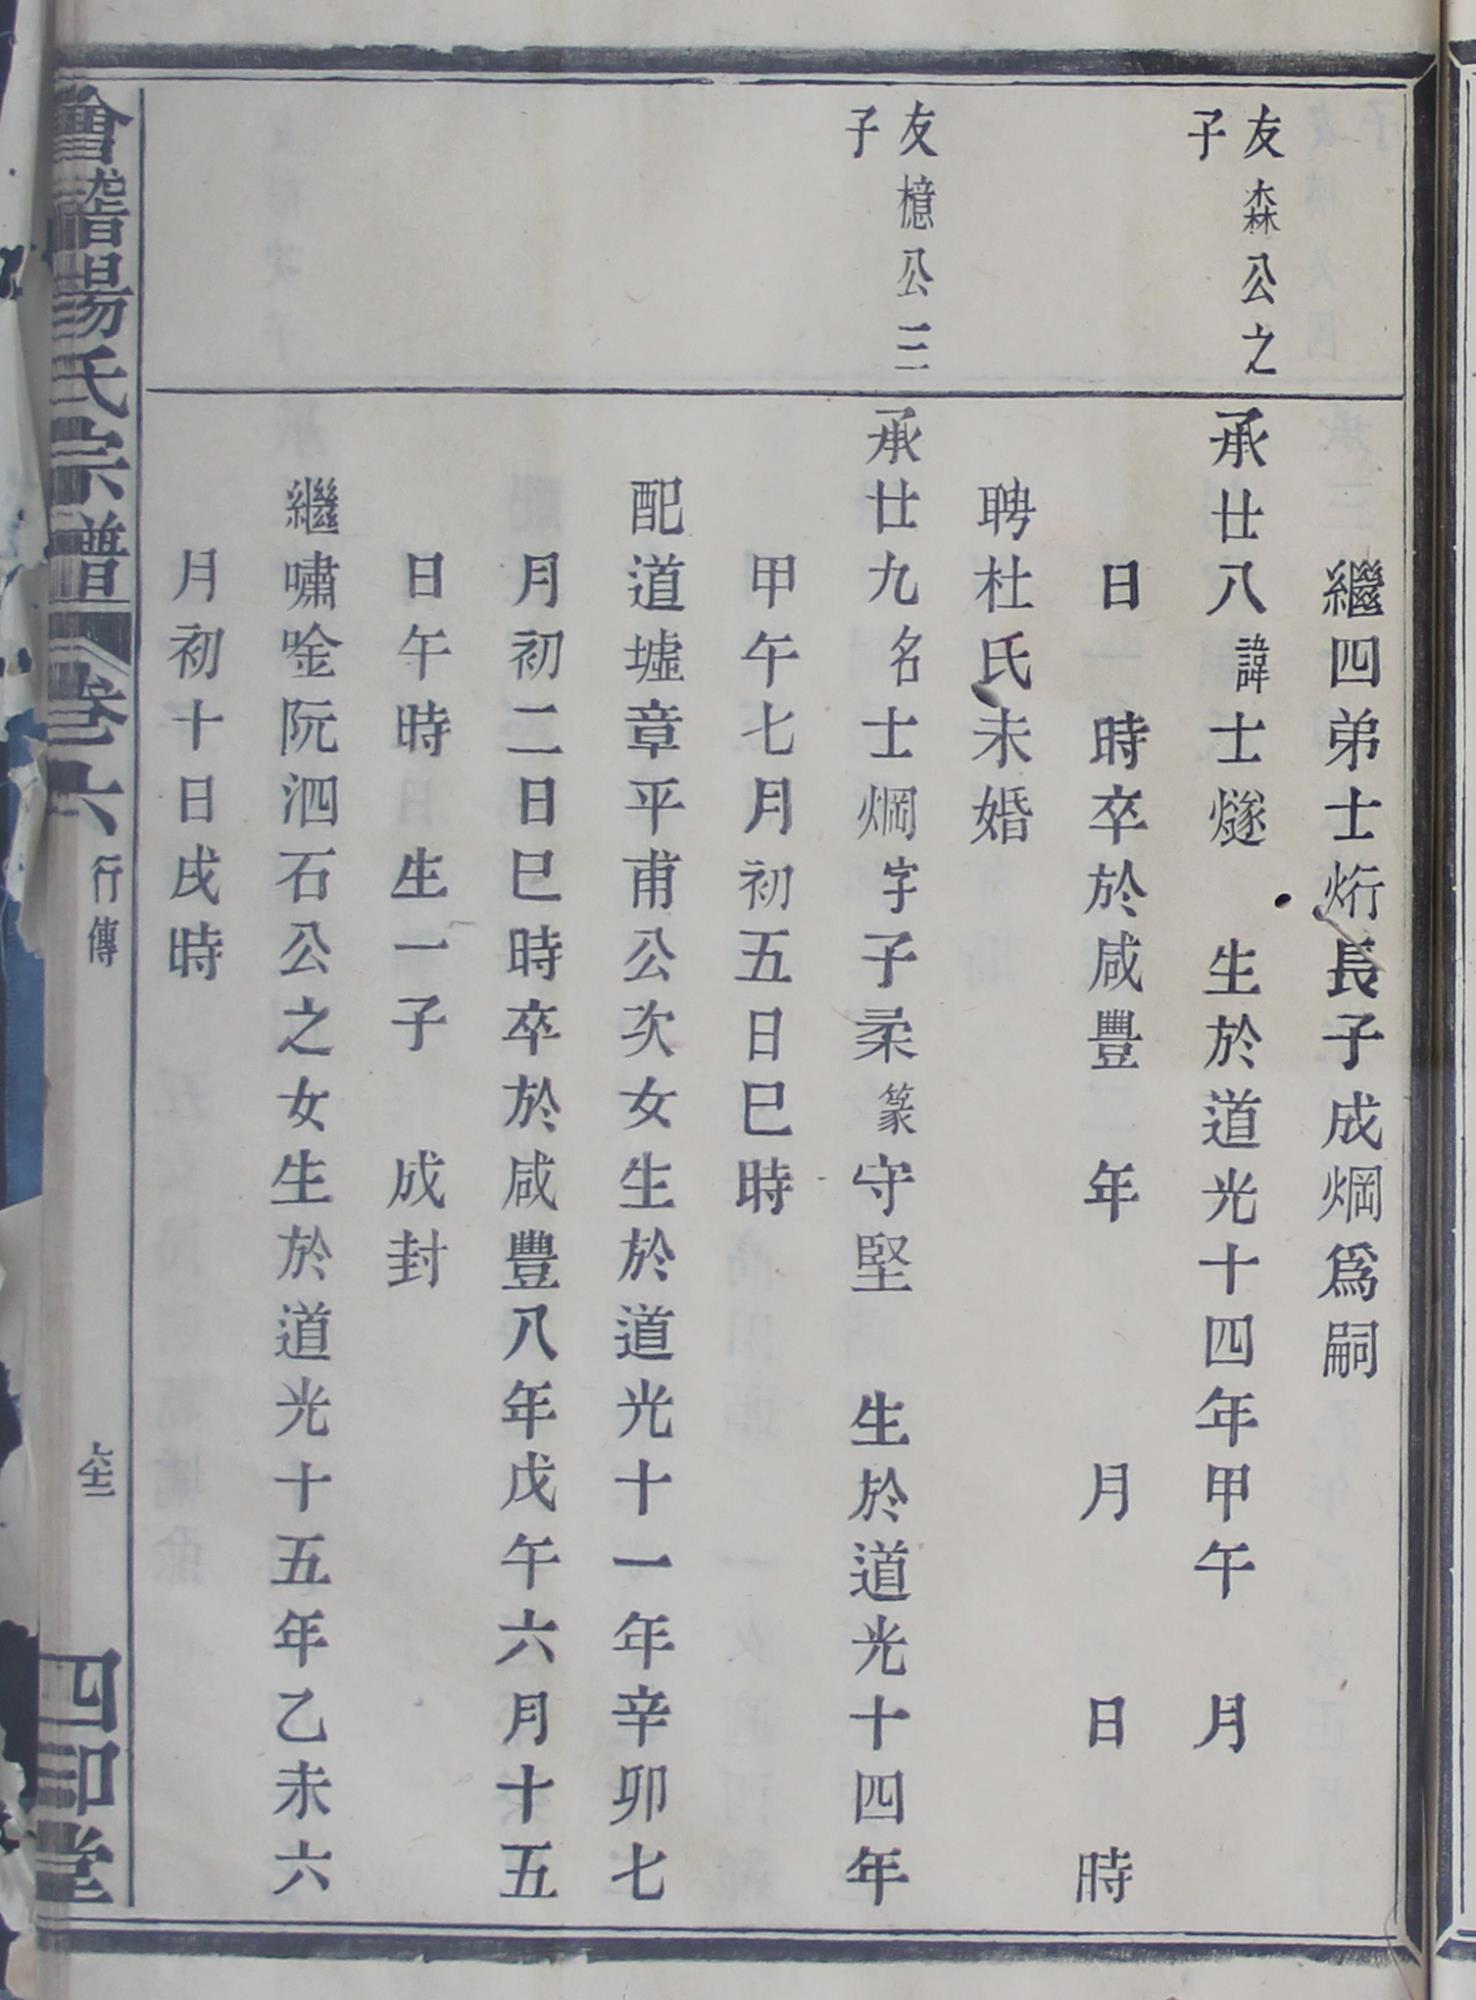 繼四弟士烆長子成烱爲嗣
友森公之
子
承廿八諱士燧 生於道光十四年甲午 月
日 時卒於咸豐 年 月 日 時
聘杜氏未婚
友檍公三
子
承廿九名士烱字子柔篆守堅 生於道光十四年
甲午七月初五日巳時
配道墟章平甫公次女生於道光十一年辛卯七
月初二日巳時卒於咸豐八年戊午六月十五
日午時生一子 成封
繼嘯唫阮泗石公之女生於道光十五年乙未六
月初十日戌時
會稽楊氏宗譜 卷六 行傳 六十三 四知堂